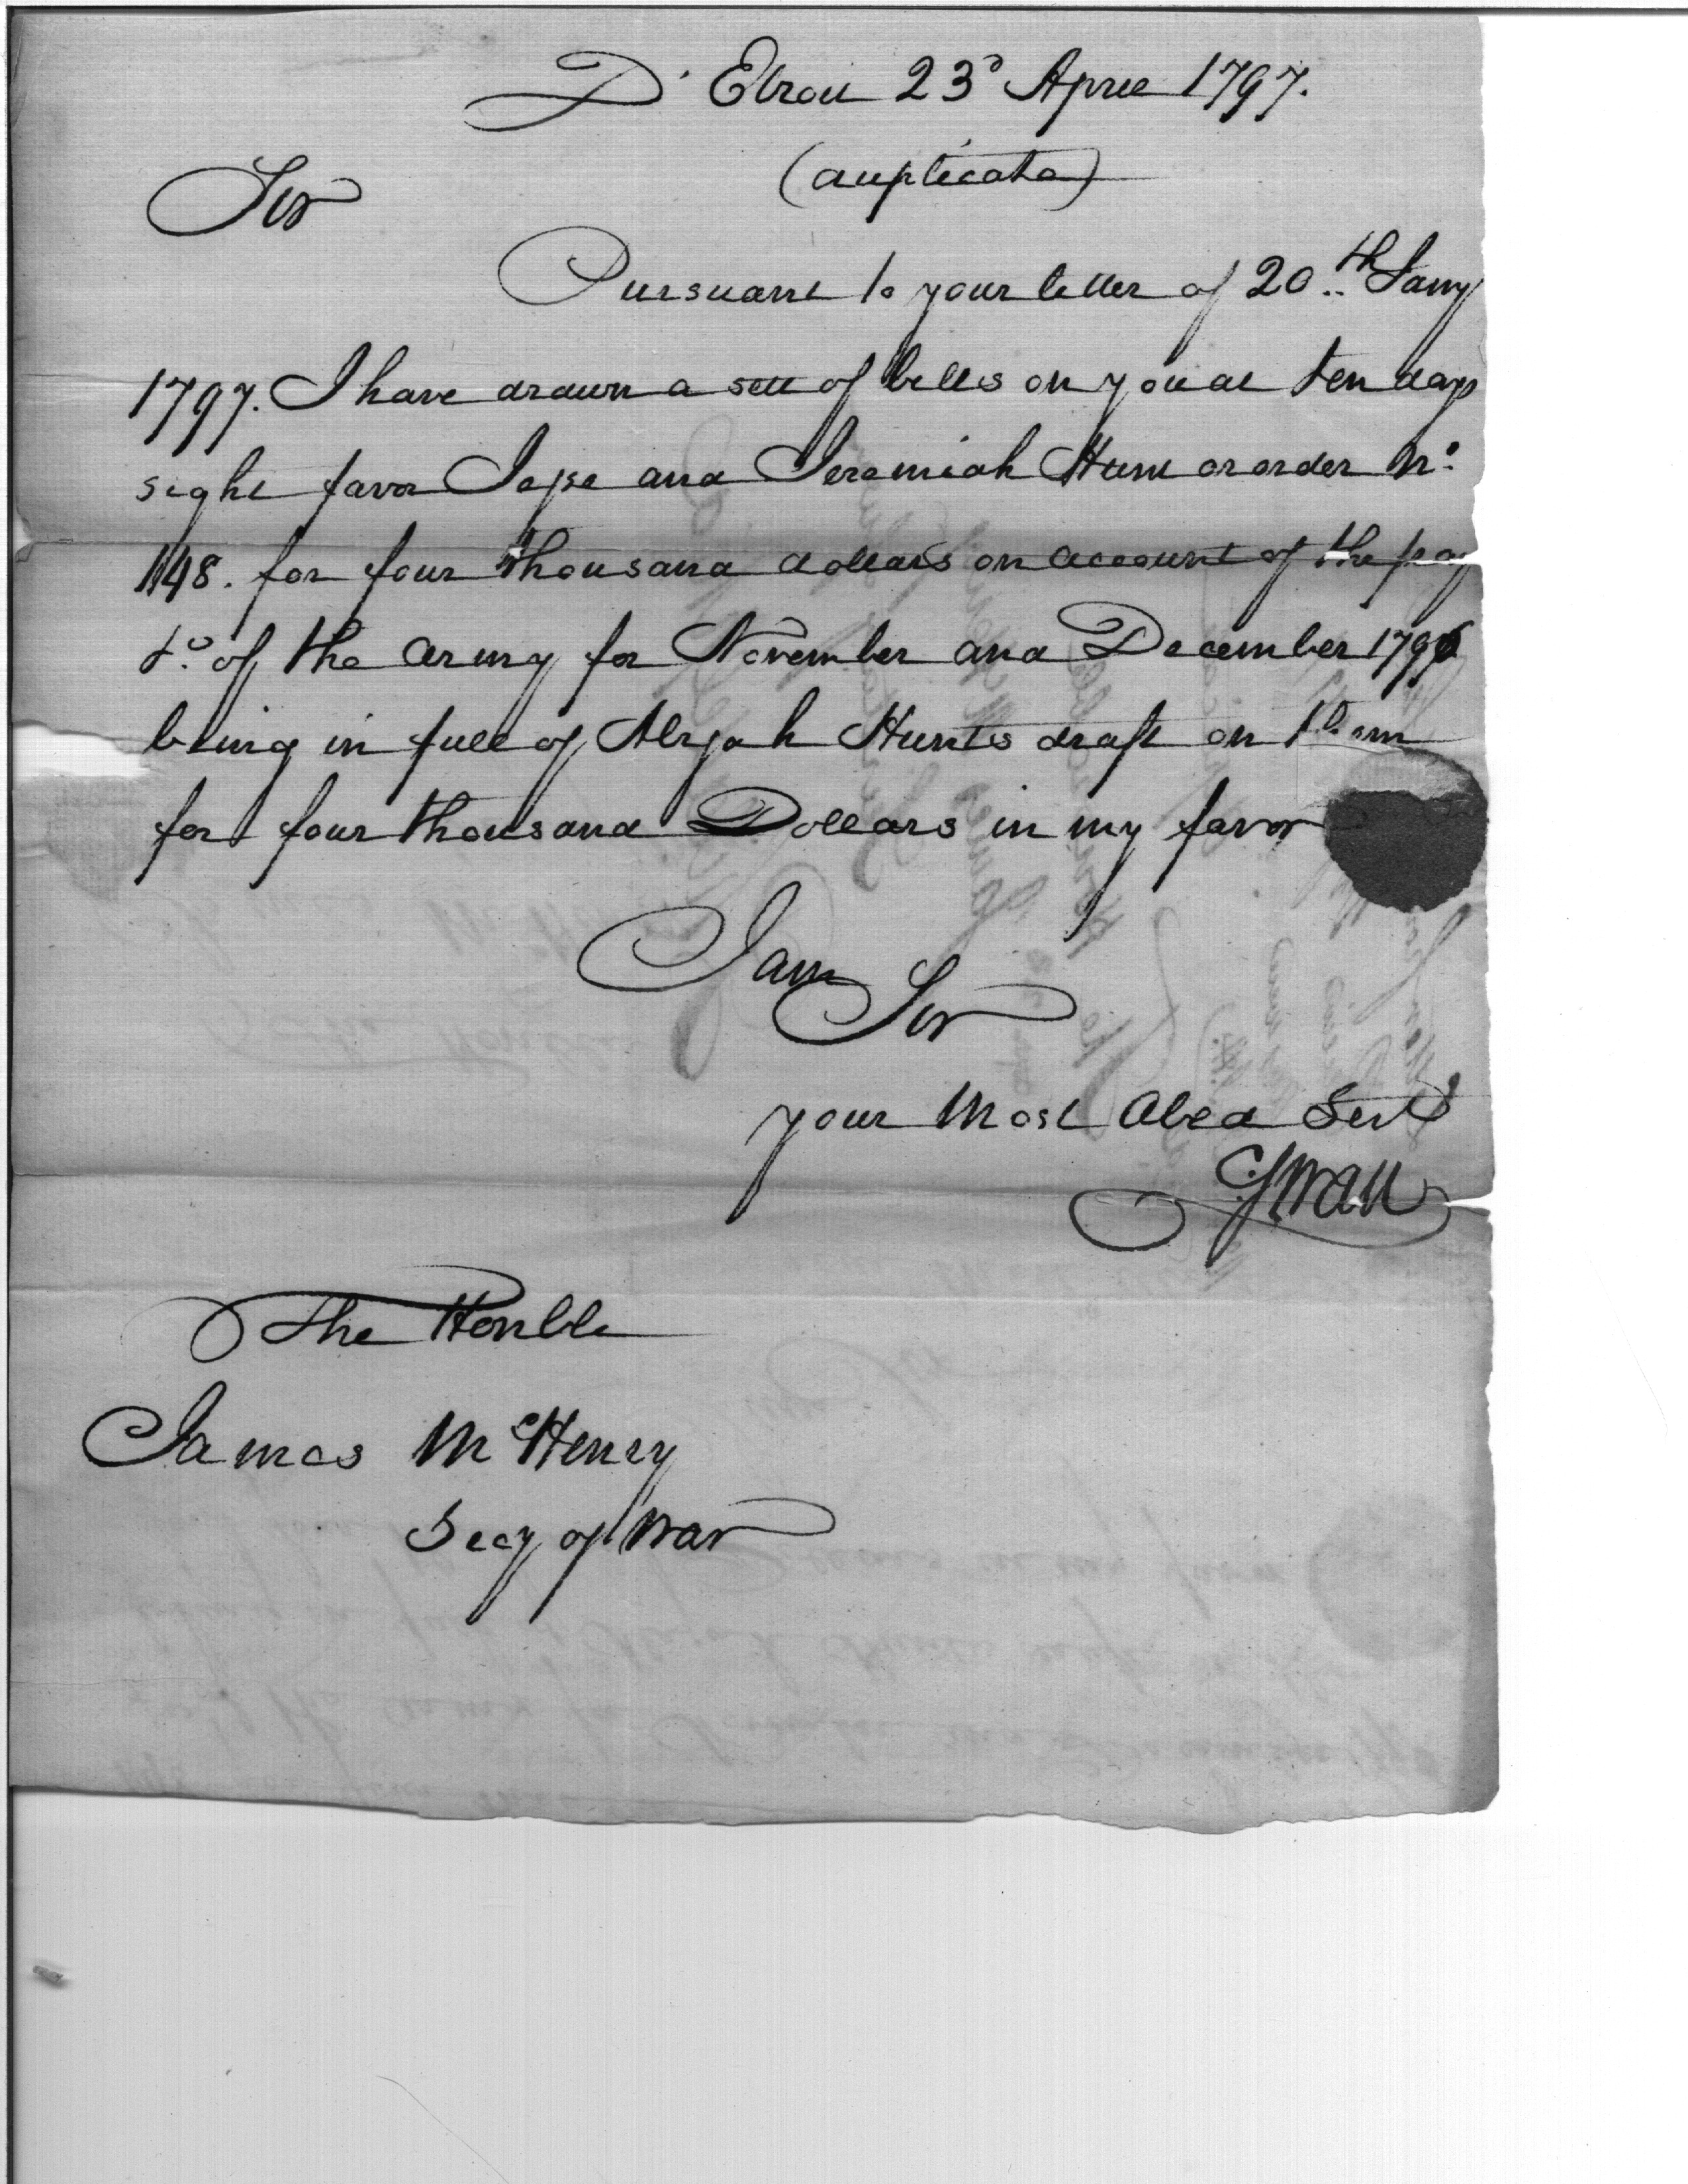 D'Etroit 23d April 1797.
(duplicate)
Sir
Pursuant to your letter of 20th Jany
1797. I have drawn a sett of bills on you at ten days
sight favor Jesse and Jeremiah Hunt or order No.
148. for four thousand dollars on account of the pay
&c. of the army for November and December 1796
being in full of Abijah Hunts draft on them
for four thousand Dollars in my favor
I am
Sir
your Most Obed Servt
CSwan
The Honble
James McHenry
Secy of War